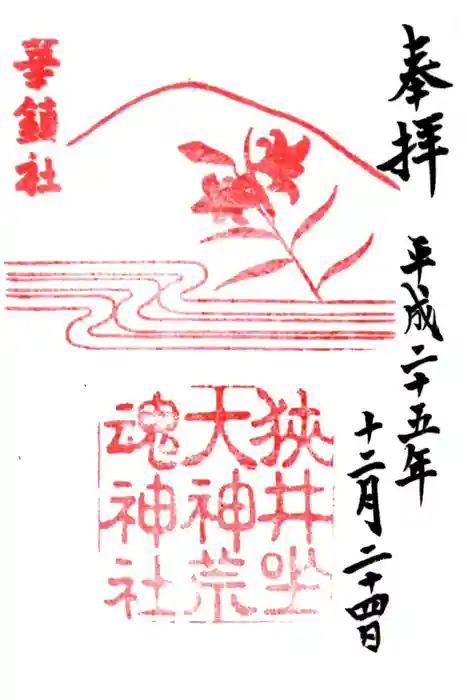 奉拝
平成二十五年
十二月二十四日
華鎮社
狭井坐
大神荒
魂神社